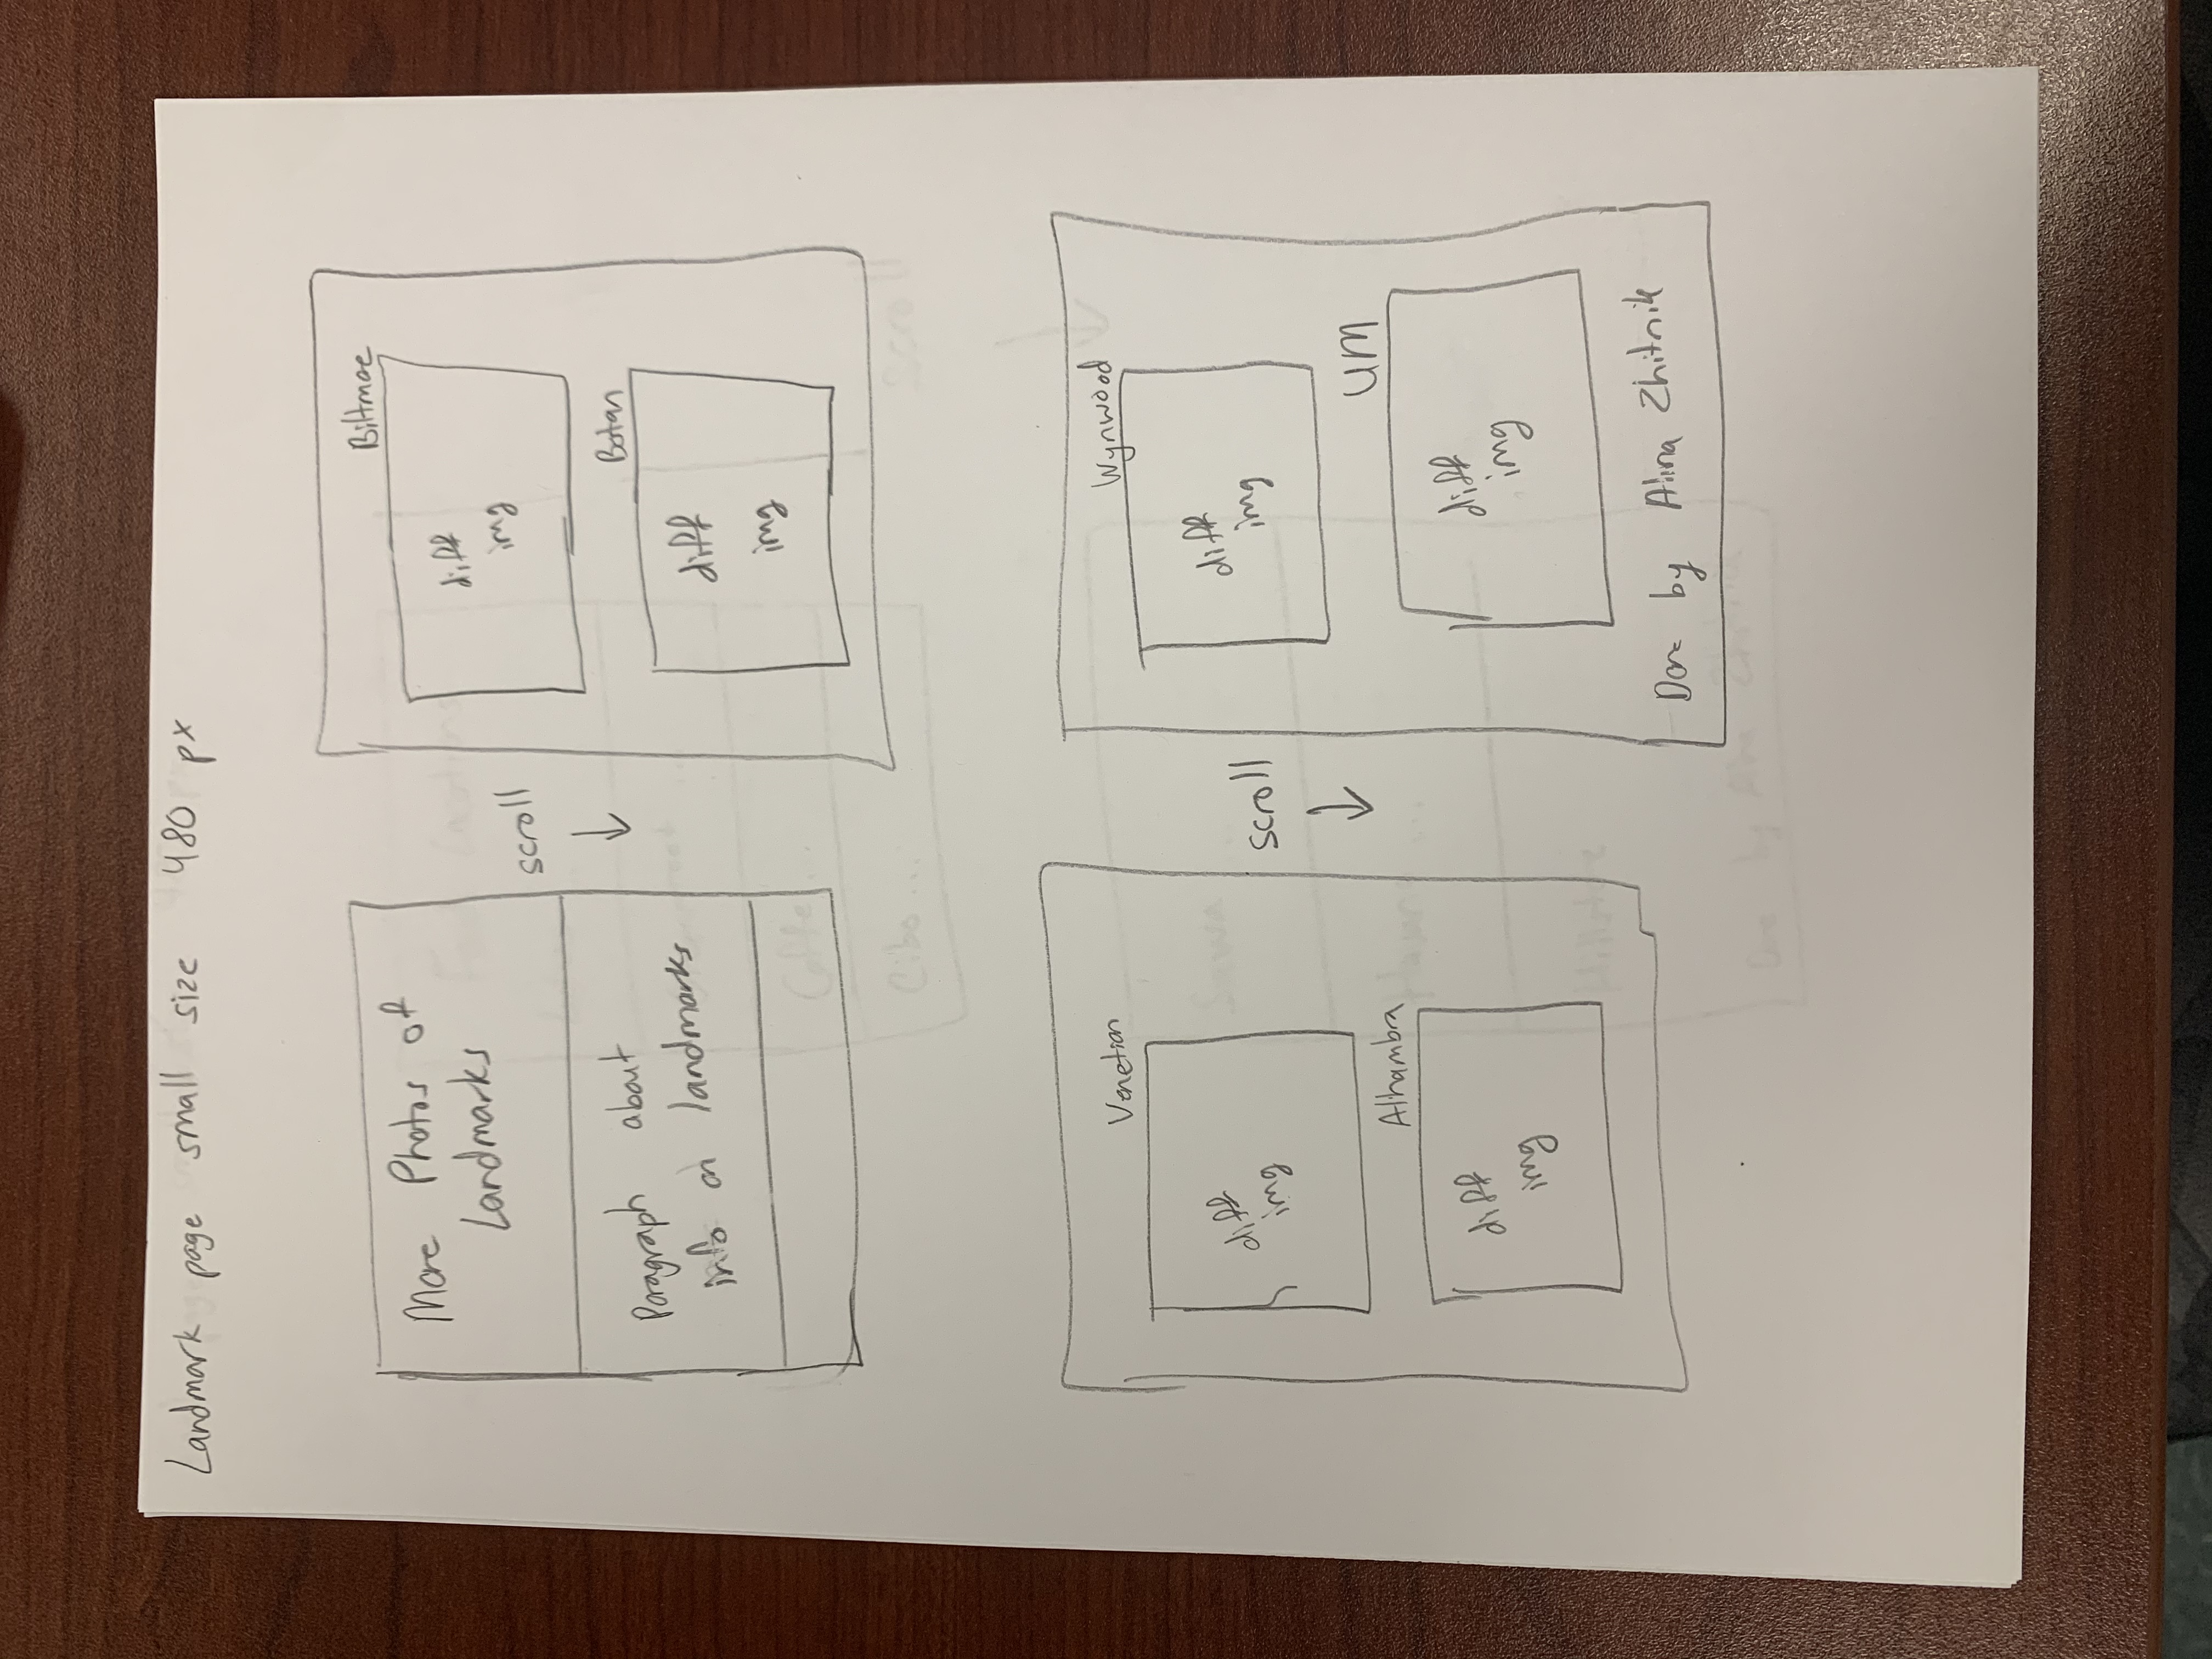 Landmark page small size 480 px
More Photos of
Landmarks
Paragraph about
info on landmarks
scroll
Biltmoe
diff
img
Botan
diff
img
Venetian
diff
img
Alhambra
diff
img
scroll
Wynwood
diff
img
UM
diff
img
Done by Alina Zhitnik
Coffe...
Cibo ...
scroll